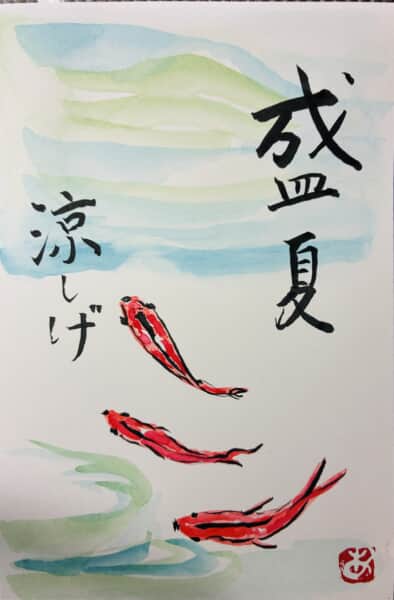 盛夏
涼しげ
あ